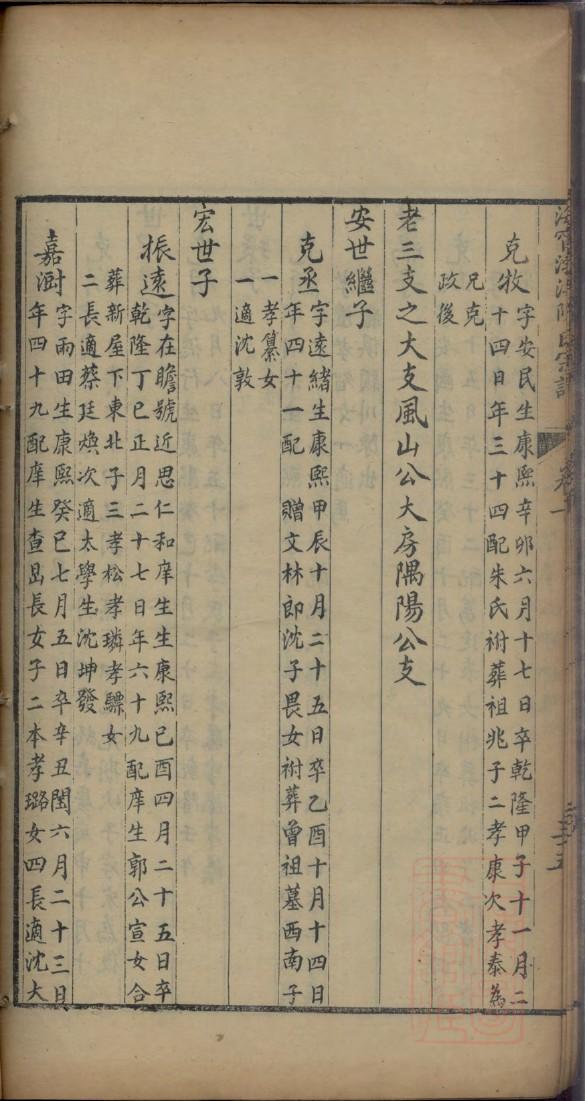 克牧字安民生康熙辛卯六月十七日卒乾隆甲子十一月二
十四日年三十四配朱氏祔葬祖兆子二孝康次孝泰為
兄克
政後
老三支之大支風山公大房隅陽公支
安世繼子
克丞字遠緒生康熙甲辰十月二十五日卒乙酉十月十四日
年四十一配 贈文林郎沈子畏女祔葬曾祖墓西南子
一孝纂女
一適沈敦
宏世子
振遠字在瞻號近思仁和庠生生康熙己酉四月二十五日卒
乾隆丁巳正月二十七日年六十九配庠生郭公宣女合
葬新屋下東北子三孝松孝璘孝驃女
二長適蔡廷煥次適太學生沈坤發
嘉澍字雨田生康熙癸巳七月五日卒辛丑閏六月二十三日
年四十九配庠生查嵒長女子二本孝璐女四長適沈大
卷一